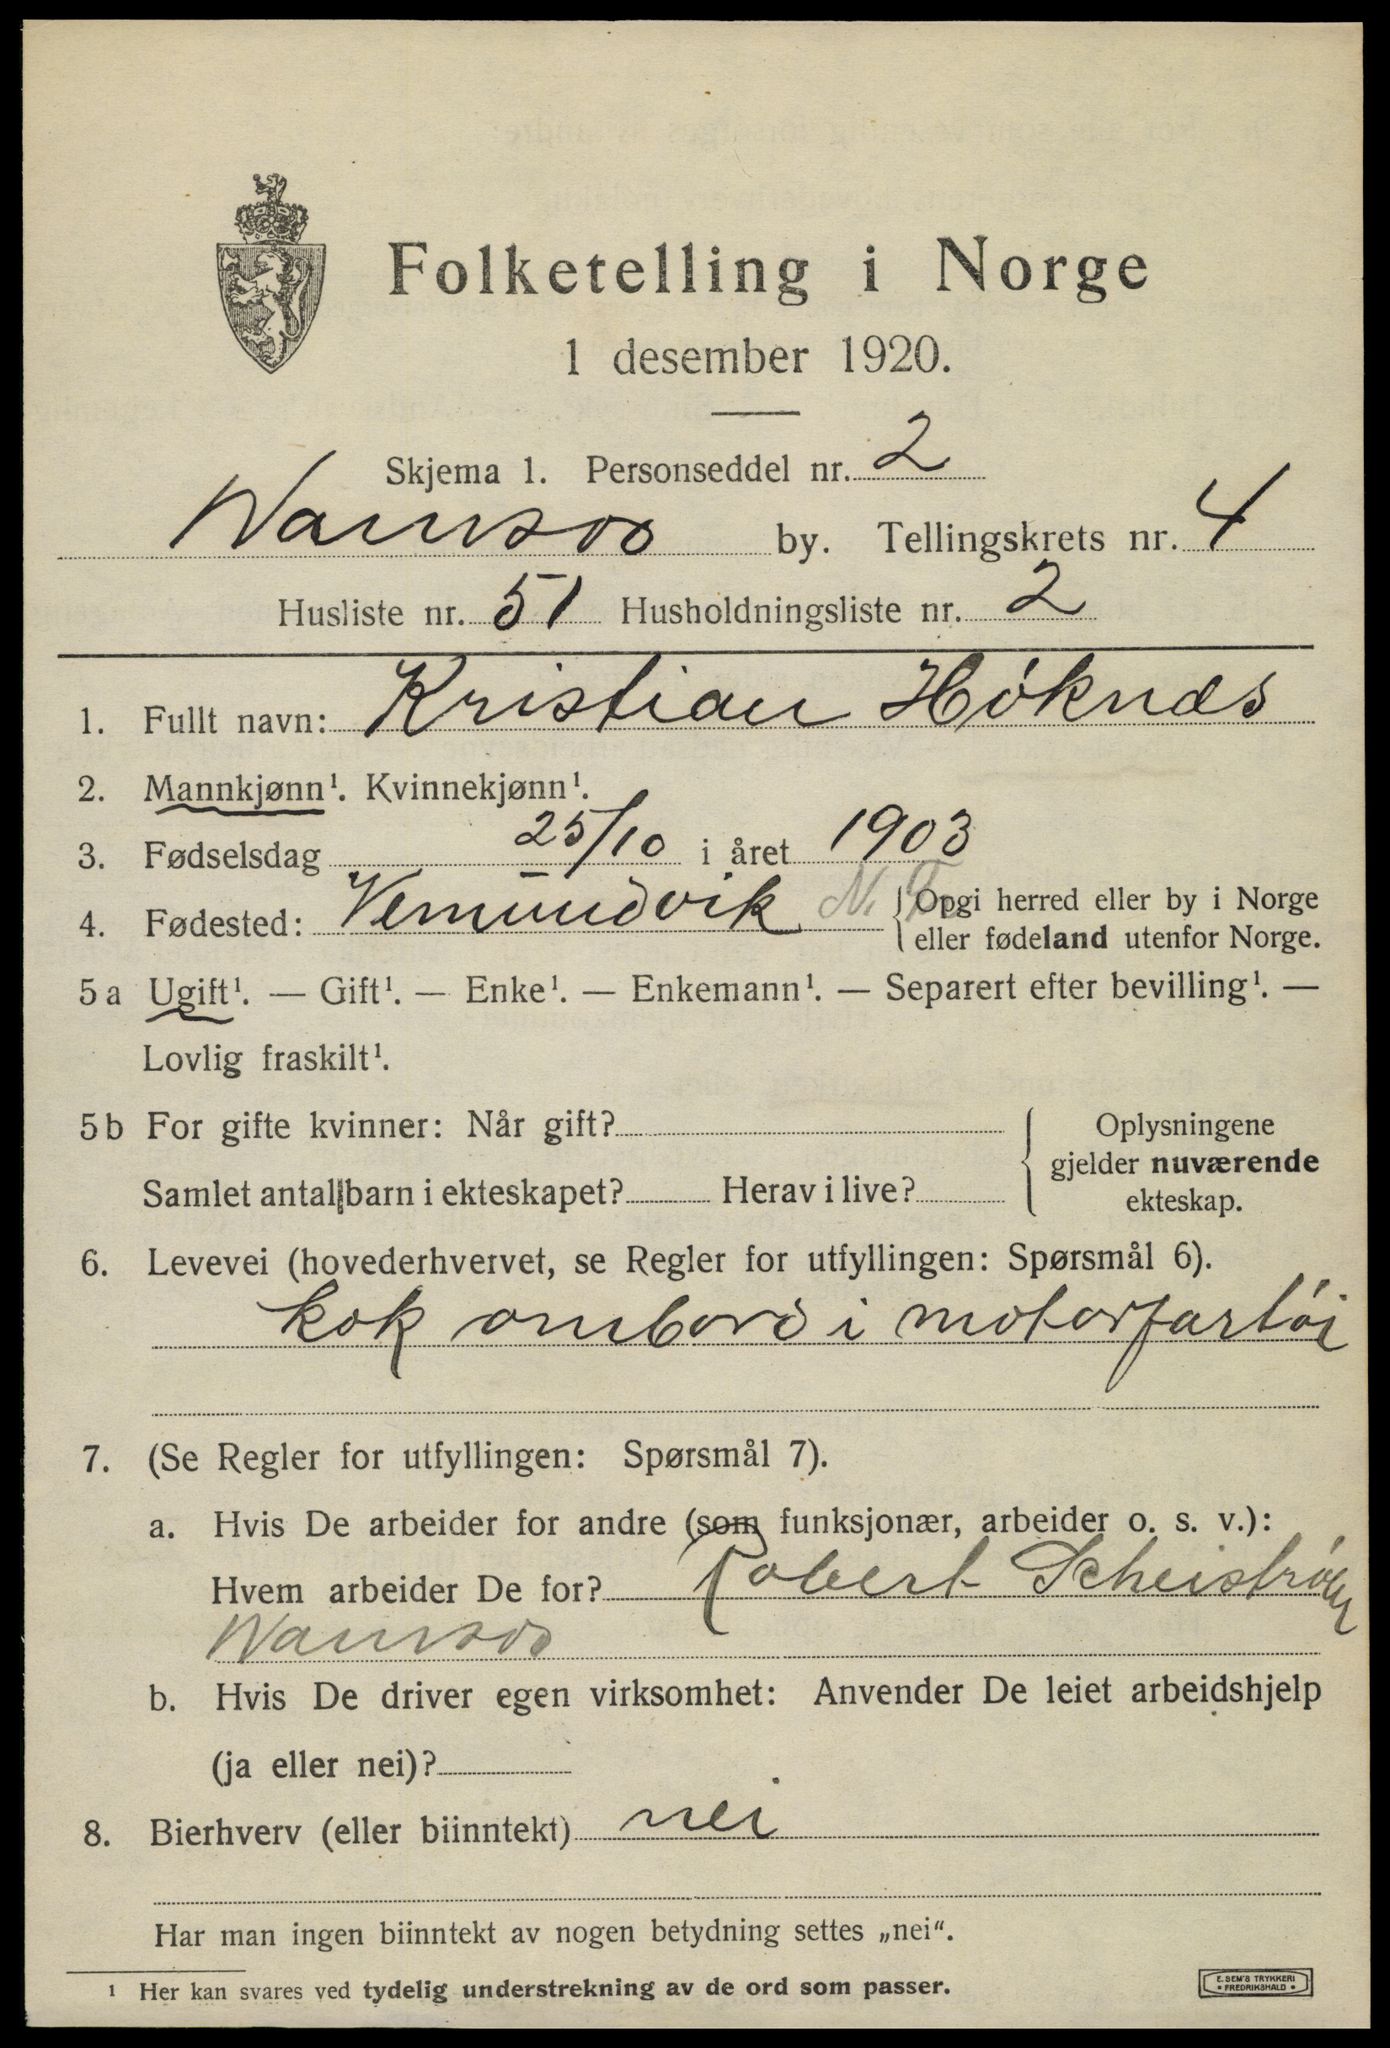 Folketelling i Norge
1 desember 1920.
Skjema 1. Personseddel nr. 2
Namsos by. Tellingskrets nr. 4
Husliste nr. 51 Husholdningsliste nr. 2
1. Fullt navn: Kristian Høknæs
2. Mannkjønn¹. Kvinnekjønn¹.
3. Fødselsdag 25/10 i året 1903
4. Fødested: Vemundvik N. T. {Opgi herred eller by i Norge
eller fødeland utenfor Norge.
5a Ugift¹. — Gift¹. — Enke¹. — Enkemann¹. — Separert efter bevilling¹. —
Lovlig fraskilt¹.
5b For gifte kvinner: Når gift?
Samlet antal barn i ekteskapet? Herav i live?
{Oplysningene
gjelder nuværende
ekteskap.
6. Levevei (hovederhvervet, se Regler for utfyllingen: Spørsmål 6).
kok ombord i motorfartøi
7. (Se Regler for utfyllingen: Spørsmål 7).
a. Hvis De arbeider for andre (som funksjonær, arbeider o. s. v.):
Hvem arbeider De for? Robert
Namsos
b. Hvis De driver egen virksomhet: Anvender De leiet arbeidshjelp
(ja eller nei)?
8. Bierhverv (eller biinntekt) nei
Har man ingen biinntekt av nogen betydning settes „nei“.
¹ Her kan svares ved tydelig understrekning av de ord som passer.
E. SEM'S TRYKKERI
• FREDRIKSHALD •